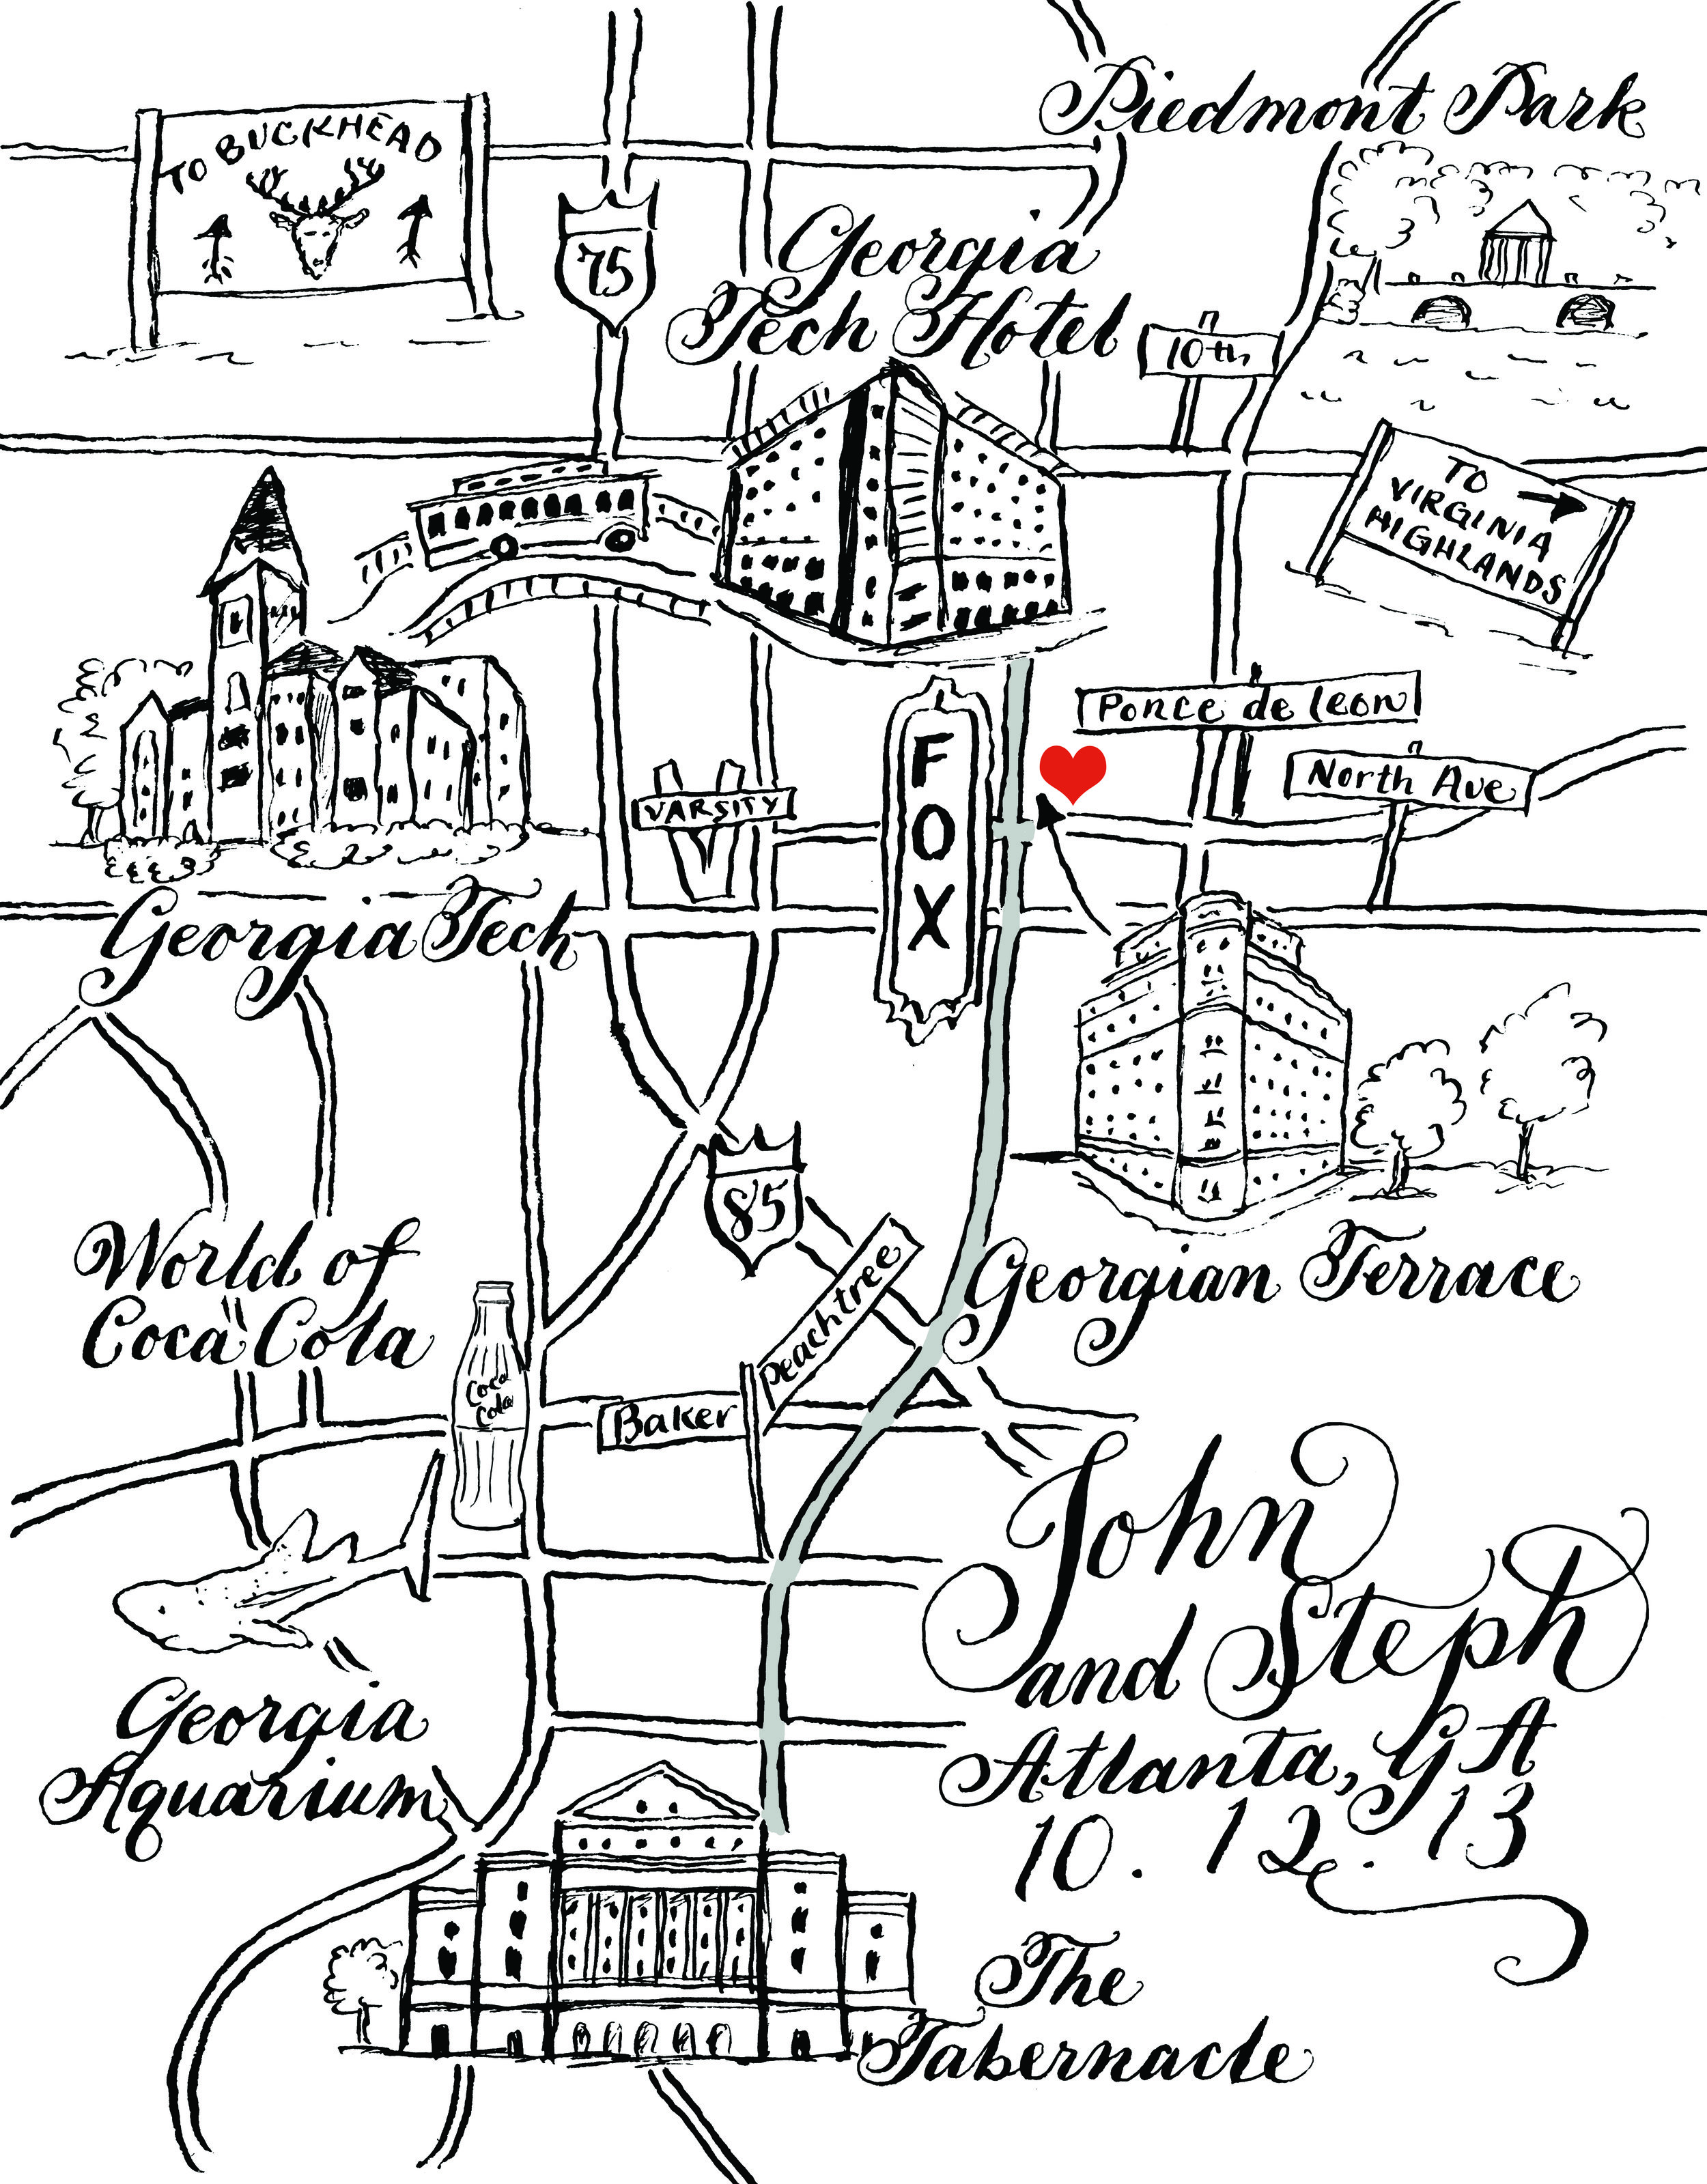 Piedmont Park
TO BUCKHEAD
75
Georgia
Tech Hotel
10th
TO
VIRGINIA
HIGHLANDS
Ponce de Leon
North Ave
VARSITY
V
FOX
Georgia Tech
85
Peachtree
Georgian Terrace
World of
Coca Cola
Coca
Cola
Baker
John
and Steph
Atlanta, GA
10. 12. 13
Georgia
Aquarium
The
Tabernacle